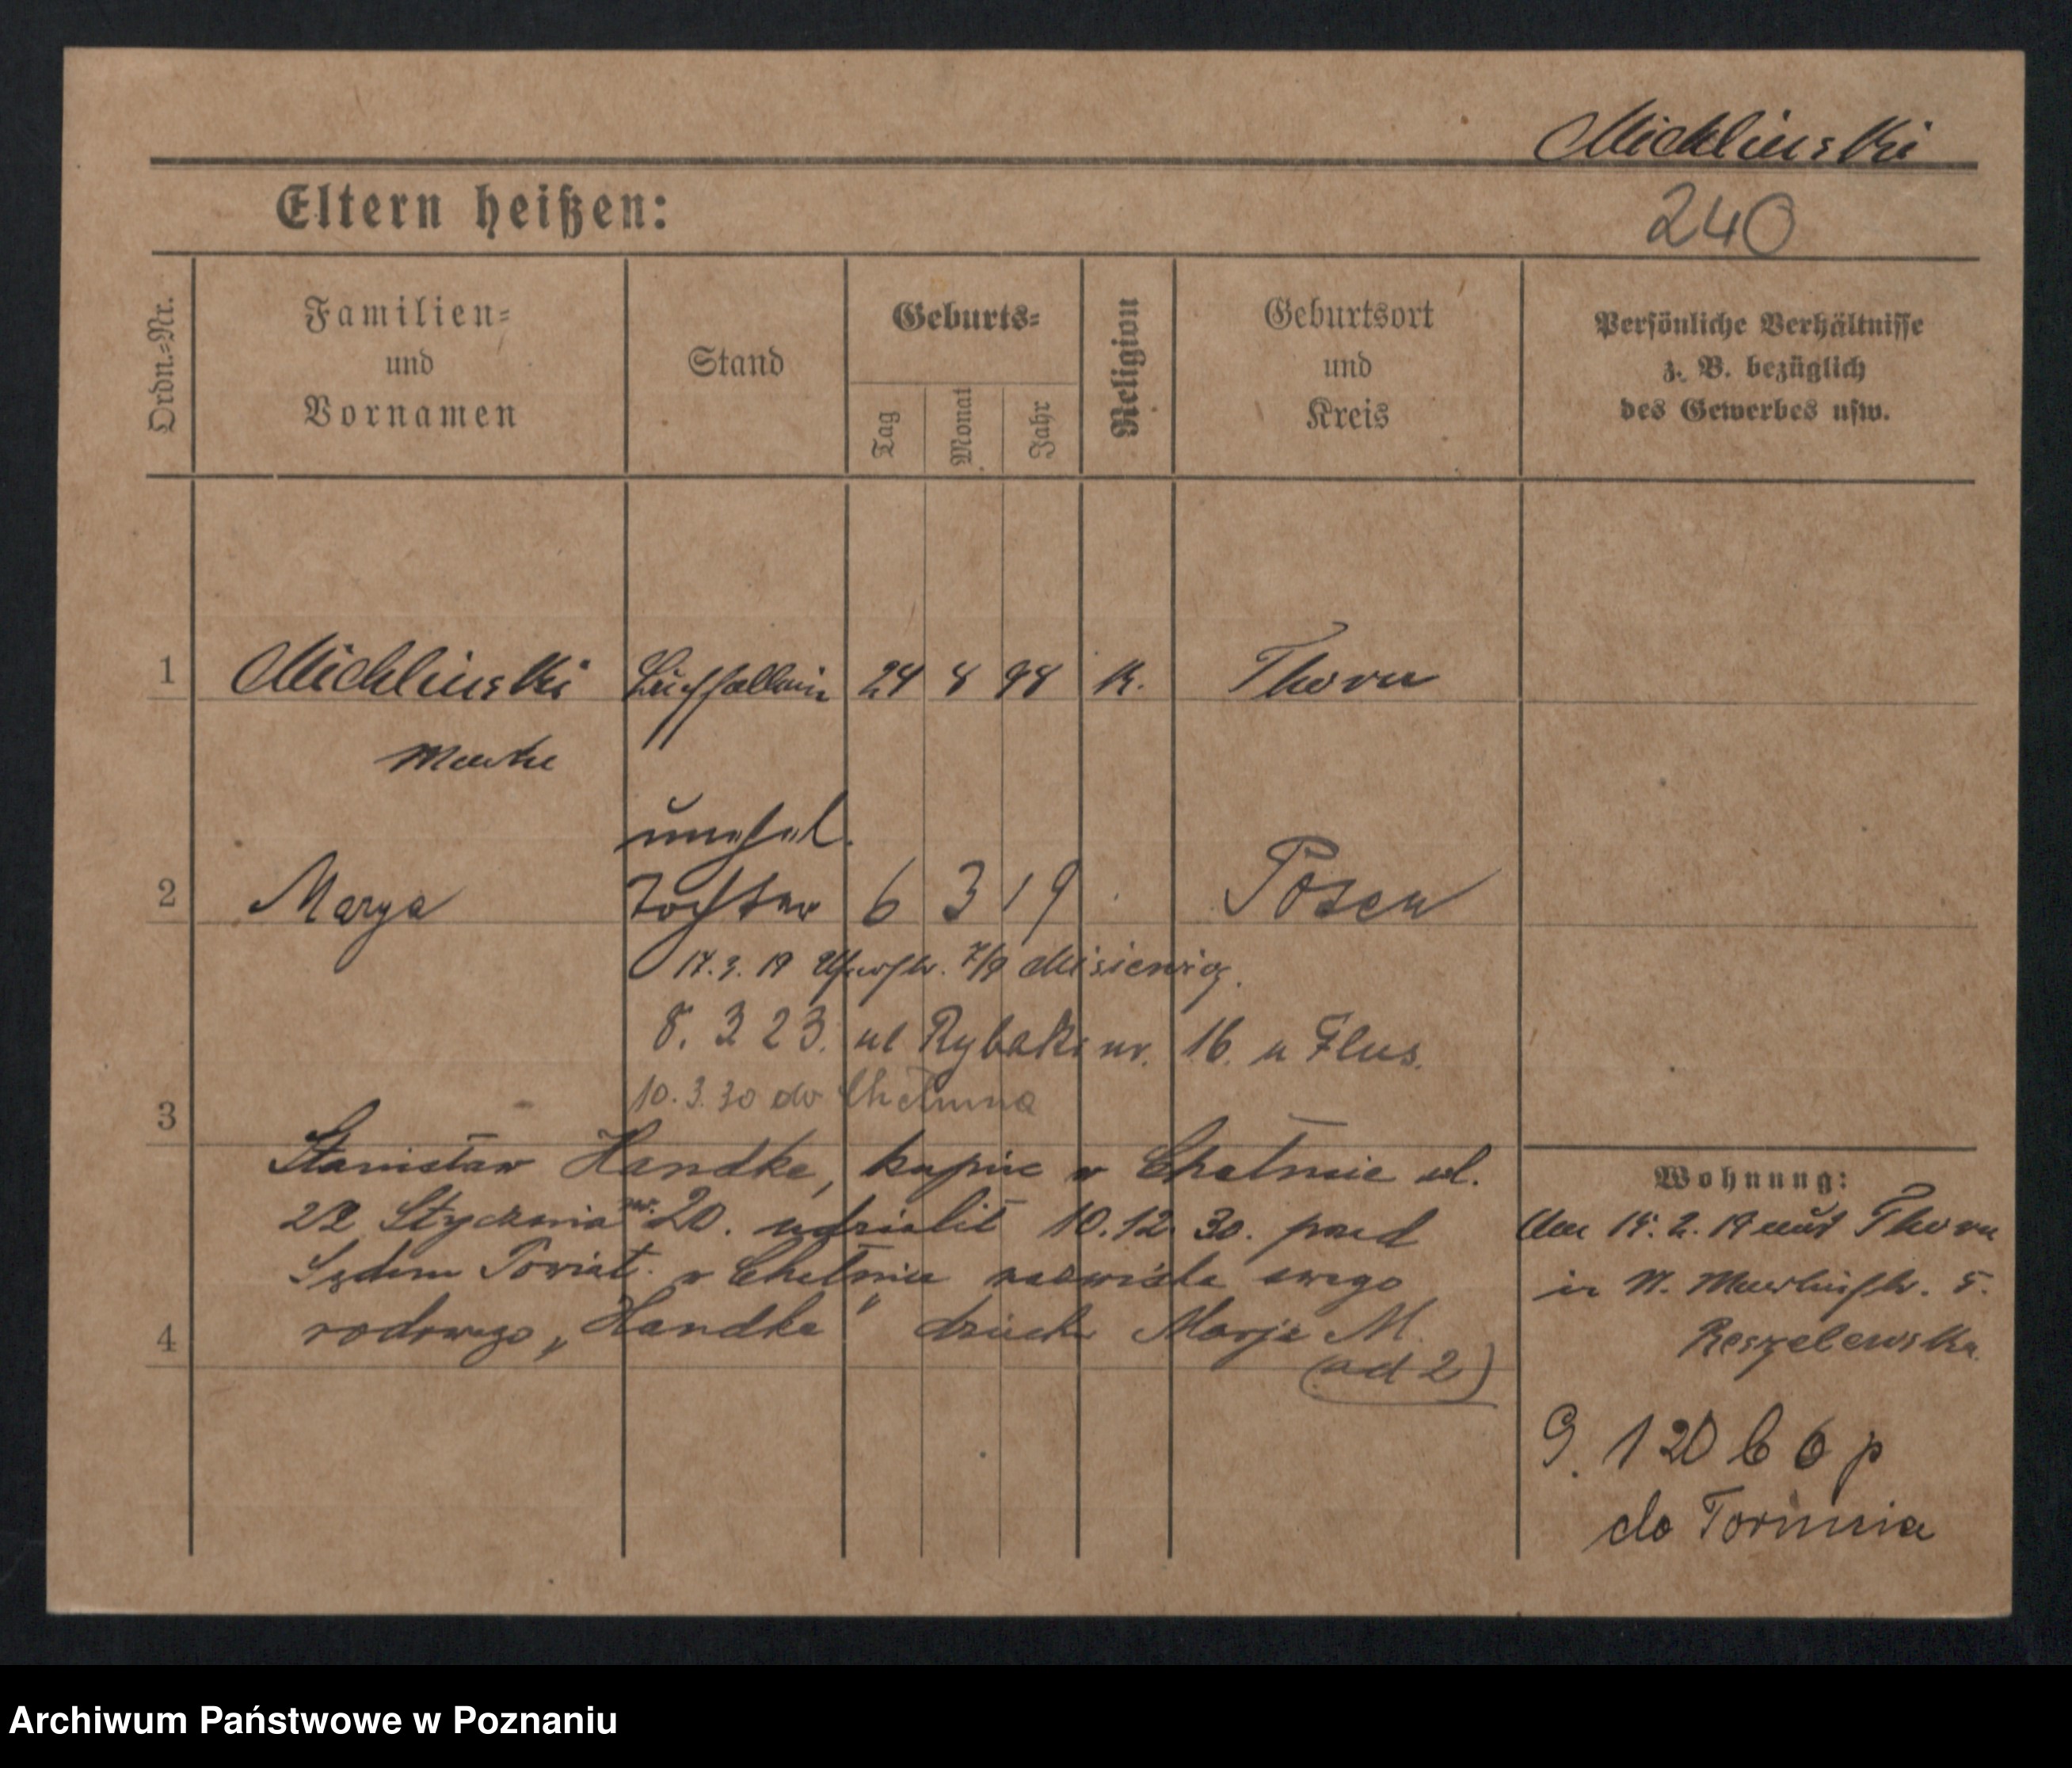 Micklinski
Eltern heißen:
240
Ordn.-Nr.
Familien-
und
Vornamen
Stand
Geburts-
Tag
Monat
Jahr
Religion
Geburtsort
und
Kreis
Persönliche Verhältnisse
z. B. bezüglich
des Gewerbes usw.
1 Micklinski 24 8 98 K. Thorn
unehel.
2 Marya Tochter 6 3 19 Posen
17.3.19 7/9 Misiewicz.
8. 3 23. ul Rybaki nr. 16. u Flus.
10.3.30 do Chełmna
3
Stanisław Handke, kupiec w Chełmnie ul.
22 Stycznia nr. 20. udzielił 10.12.30. przed
Sądem Powiat. w Chełmnie nazwiska swego
4 rodowego „Handke" dziecku Marja M.
(ad 2)
Wohnung:
15.2.19 aus Thorn
in 5.
Reszelewska.
9. 1 20 b 6 p
do Torunia
Archiwum Państwowe w Poznaniu